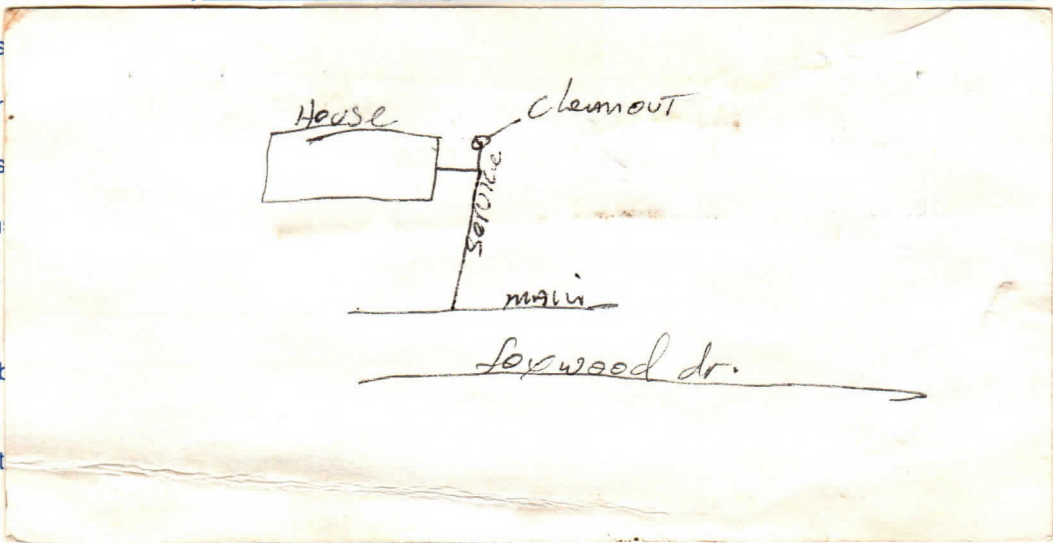 House
Cleanout
Service
main
foxwood dr.